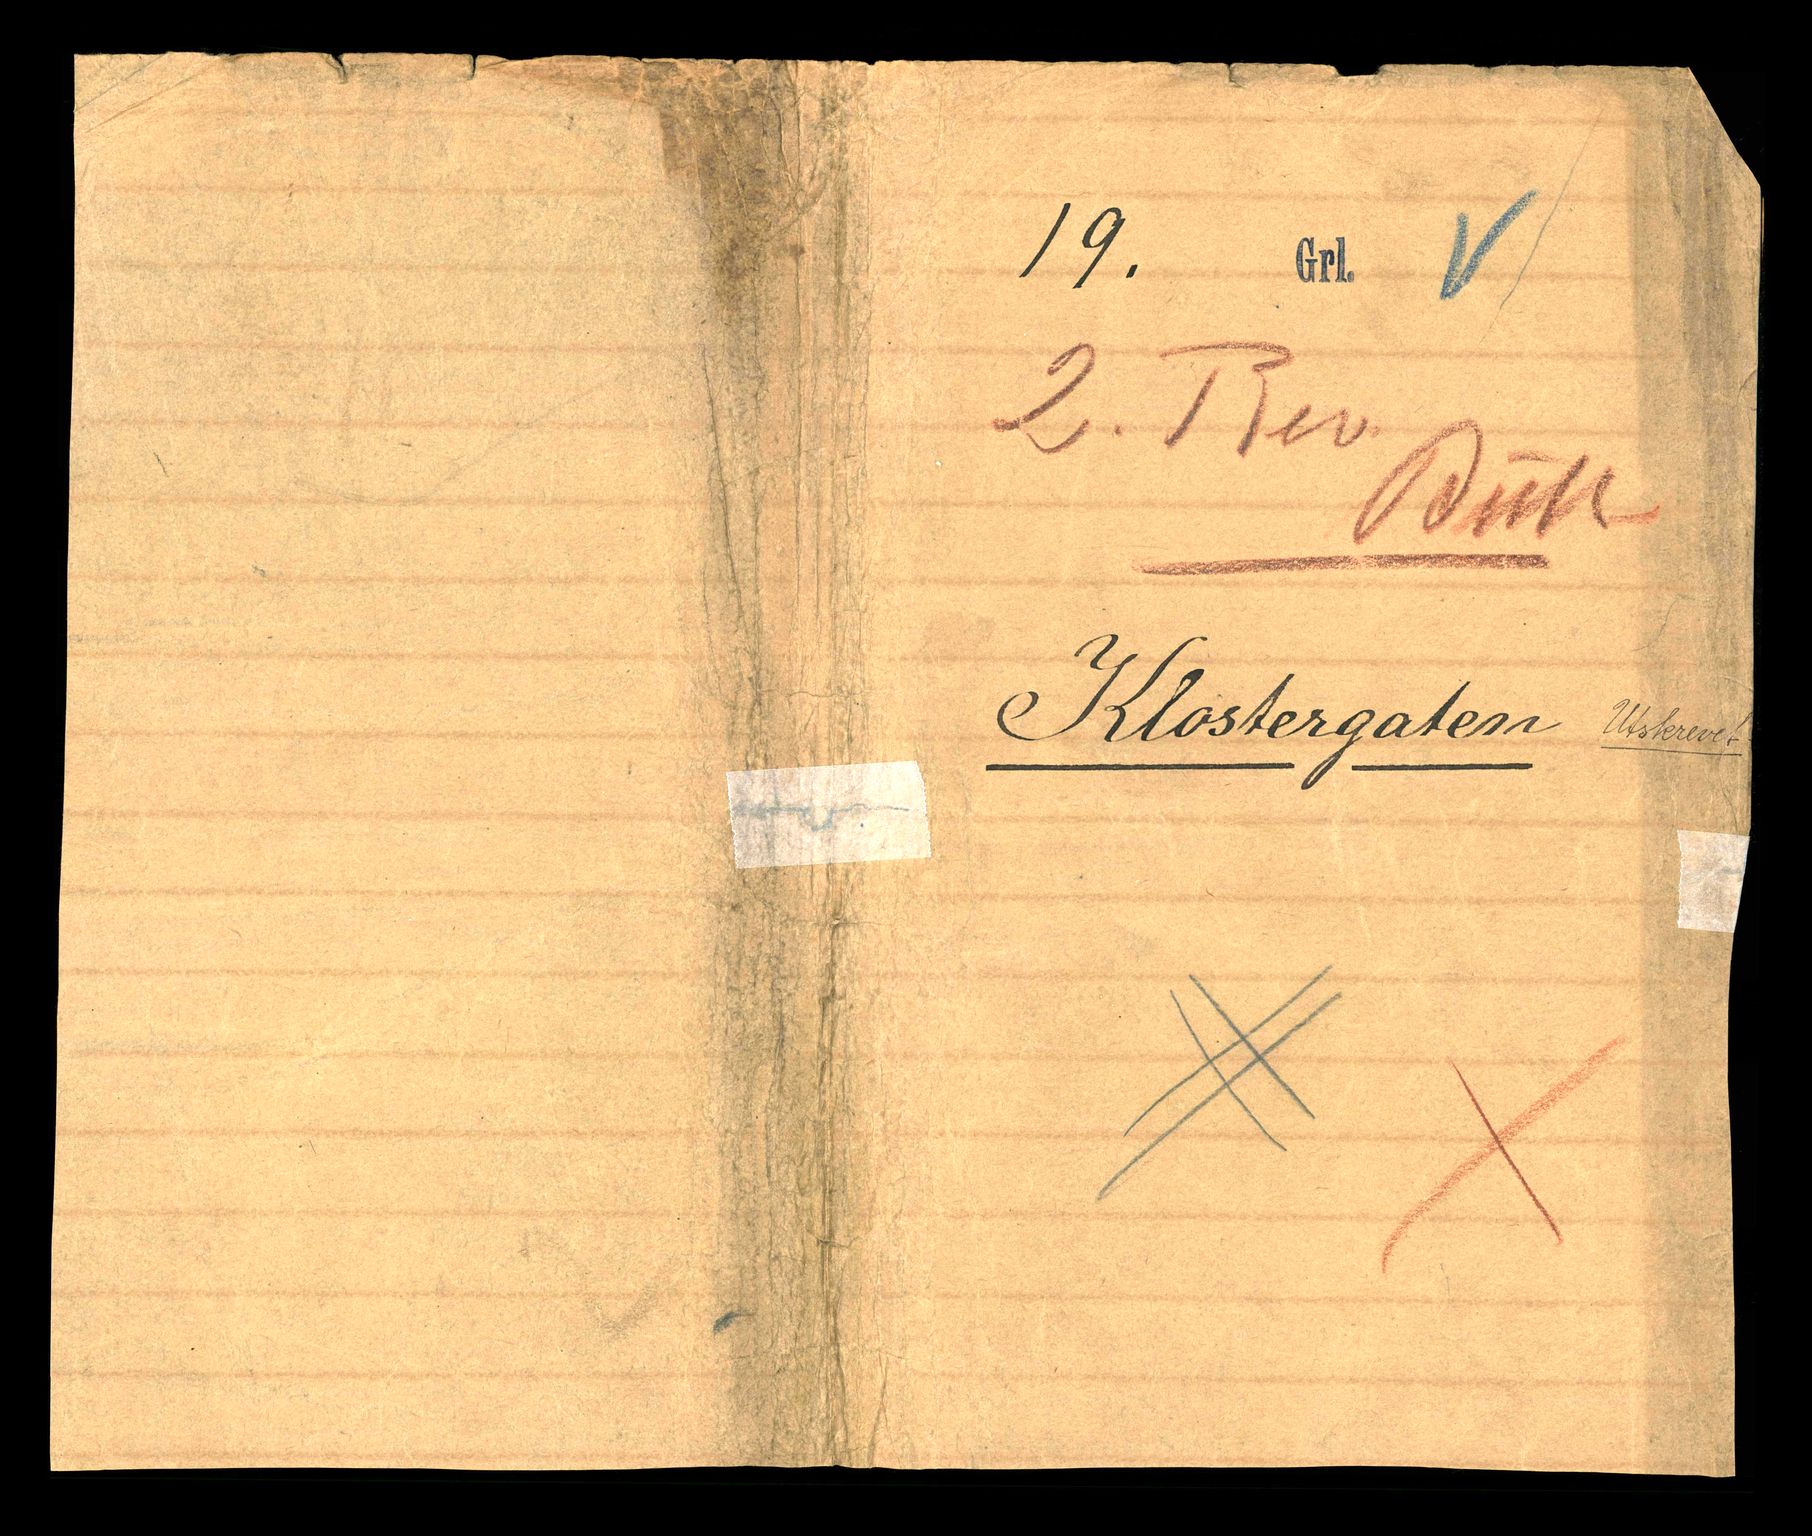 19. Grl.
2. Rev.
Klostergaten Utskrevet